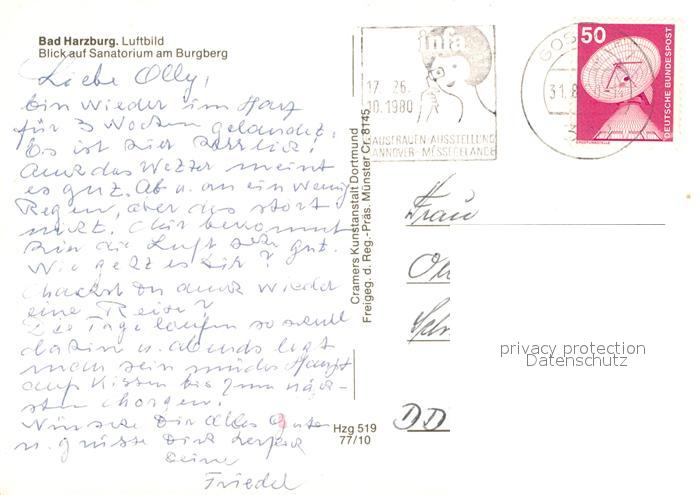 Bad Harzburg. Luftbild
Blick auf Sanatorium am Burgberg
Liebe Olly,
bin wieder im Harz
für 3 Wochen gelandet.
Es ist hier herrlich!
Auch das Wetter meint
es gut. Ab u. an ein wenig
Regen, aber das stört
nicht. Mir bekommt
hier die Luft sehr gut.
Wie geht es Dir?
Machst Du auch wieder
eine Reise?
Die Tage laufen so schnell
dahin u. abends legt
man sein müdes Haupt
auf Kissen bis zum näch-
sten Morgen.
Wünsche Dir alles Gute
u. grüsse Dich herzlich
Deine
Friedel
Hzg 519
77/10
Cramers Kunstanstalt Dortmund
Freigeg. d. Reg.-Präs. Münster Cr. 8145
infa
17. 26.
10.1980
HAUSFRAUEN-AUSSTELLUNG
HANNOVER-MESSEGELÄNDE
GOS
31.8
50
DEUTSCHE BUNDESPOST
ERDFUNKSTELLE
Frau
DD
privacy protection
Datenschutz